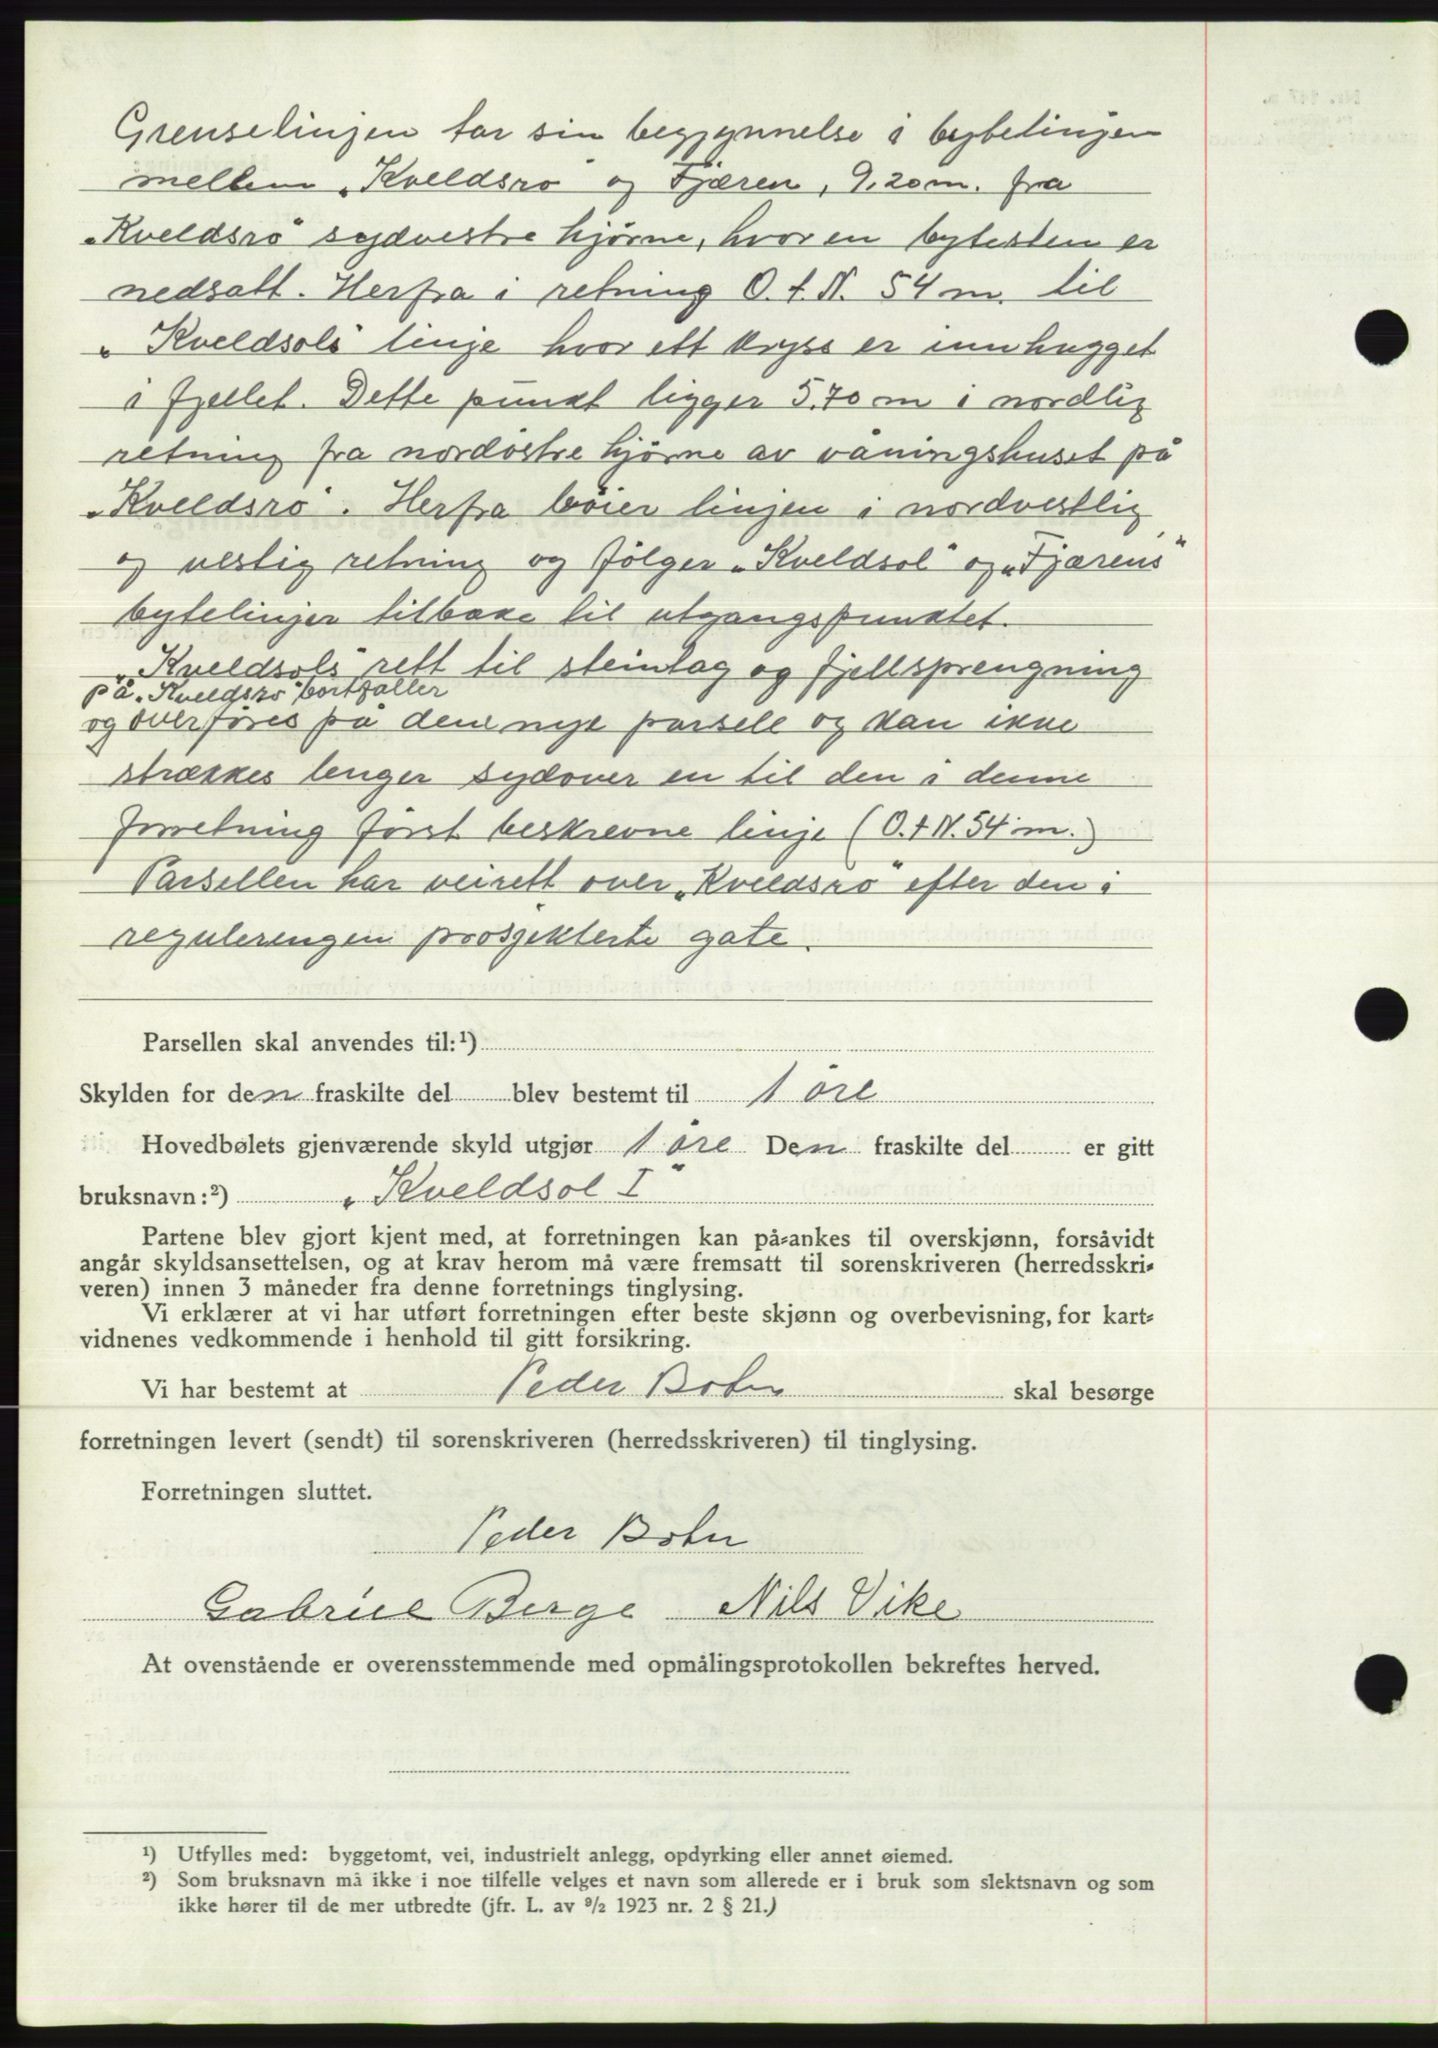 Grenselinjen tar sin begynnelse i bytelinjen
mellem „Kveldsro" og Fjæren, 9,20 m. fra
„Kveldsro" sydvestre hjørne, hvor en bytesten er
nedsatt. Herfra i retning O. t. N. 54 m. til
„Kveldsols" linje hvor ett kryss er innhugget
i fjellet. Dette punkt ligger 5.70 m i nordlig
retning fra nordöstre hjørne av våningshuset på
„Kveldsro". Herfra böier linjen i nordvestlig
og vestlig retning og fölger „Kveldsol" og „Fjærens"
bytelinjer tilbake til utgangspunktet.
„Kveldsols" rett til steintag og fjellsprengning
på „Kveldsro" bortfaller
og overföres på denne nye parsell og kan ikke
strækkes lenger sydover en til den i denne
forretning först beskrevne linje (O. t N. 54 m.)
Parsellen har veirett over „Kveldsro" efter den i
reguleringen prosjekterte gate.
Parsellen skal anvendes til:¹)
Skylden for den fraskilte del blev bestemt til 1 öre
Hovedbølets gjenværende skyld utgjør 1 öre Den fraskilte del er gitt
bruksnavn:²) „Kveldsol I"
Partene blev gjort kjent med, at forretningen kan på-ankes til overskjønn, forsåvidt
angår skyldsansettelsen, og at krav herom må være fremsatt til sorenskriveren (herredsskri-
veren) innen 3 måneder fra denne forretnings tinglysing.
Vi erklærer at vi har utført forretningen efter beste skjønn og overbevisning, for kart-
vidnenes vedkommende i henhold til gitt forsikring.
Vi har bestemt at Peder Botn skal besørge
forretningen levert (sendt) til sorenskriveren (herredsskriveren) til tinglysing.
Forretningen sluttet.
Peder Botn
Gabriel Berge Nils Vike
At ovenstående er overensstemmende med opmålingsprotokollen bekreftes herved.
¹) Utfylles med: byggetomt, vei, industrielt anlegg, opdyrking eller annet øiemed.
²) Som bruksnavn må ikke i noe tilfelle velges et navn som allerede er i bruk som slektsnavn og som
ikke hører til de mer utbredte (jfr. L. av ⁹/₂ 1923 nr. 2 § 21.)